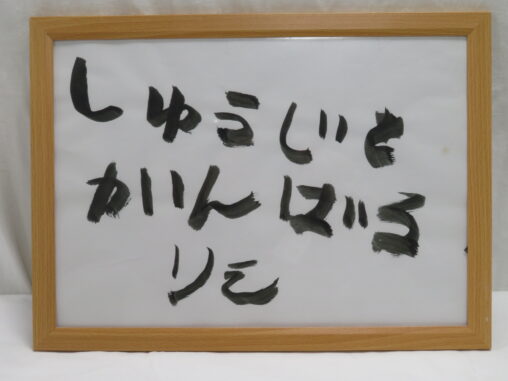 しゅうじと
がんばる
りこ